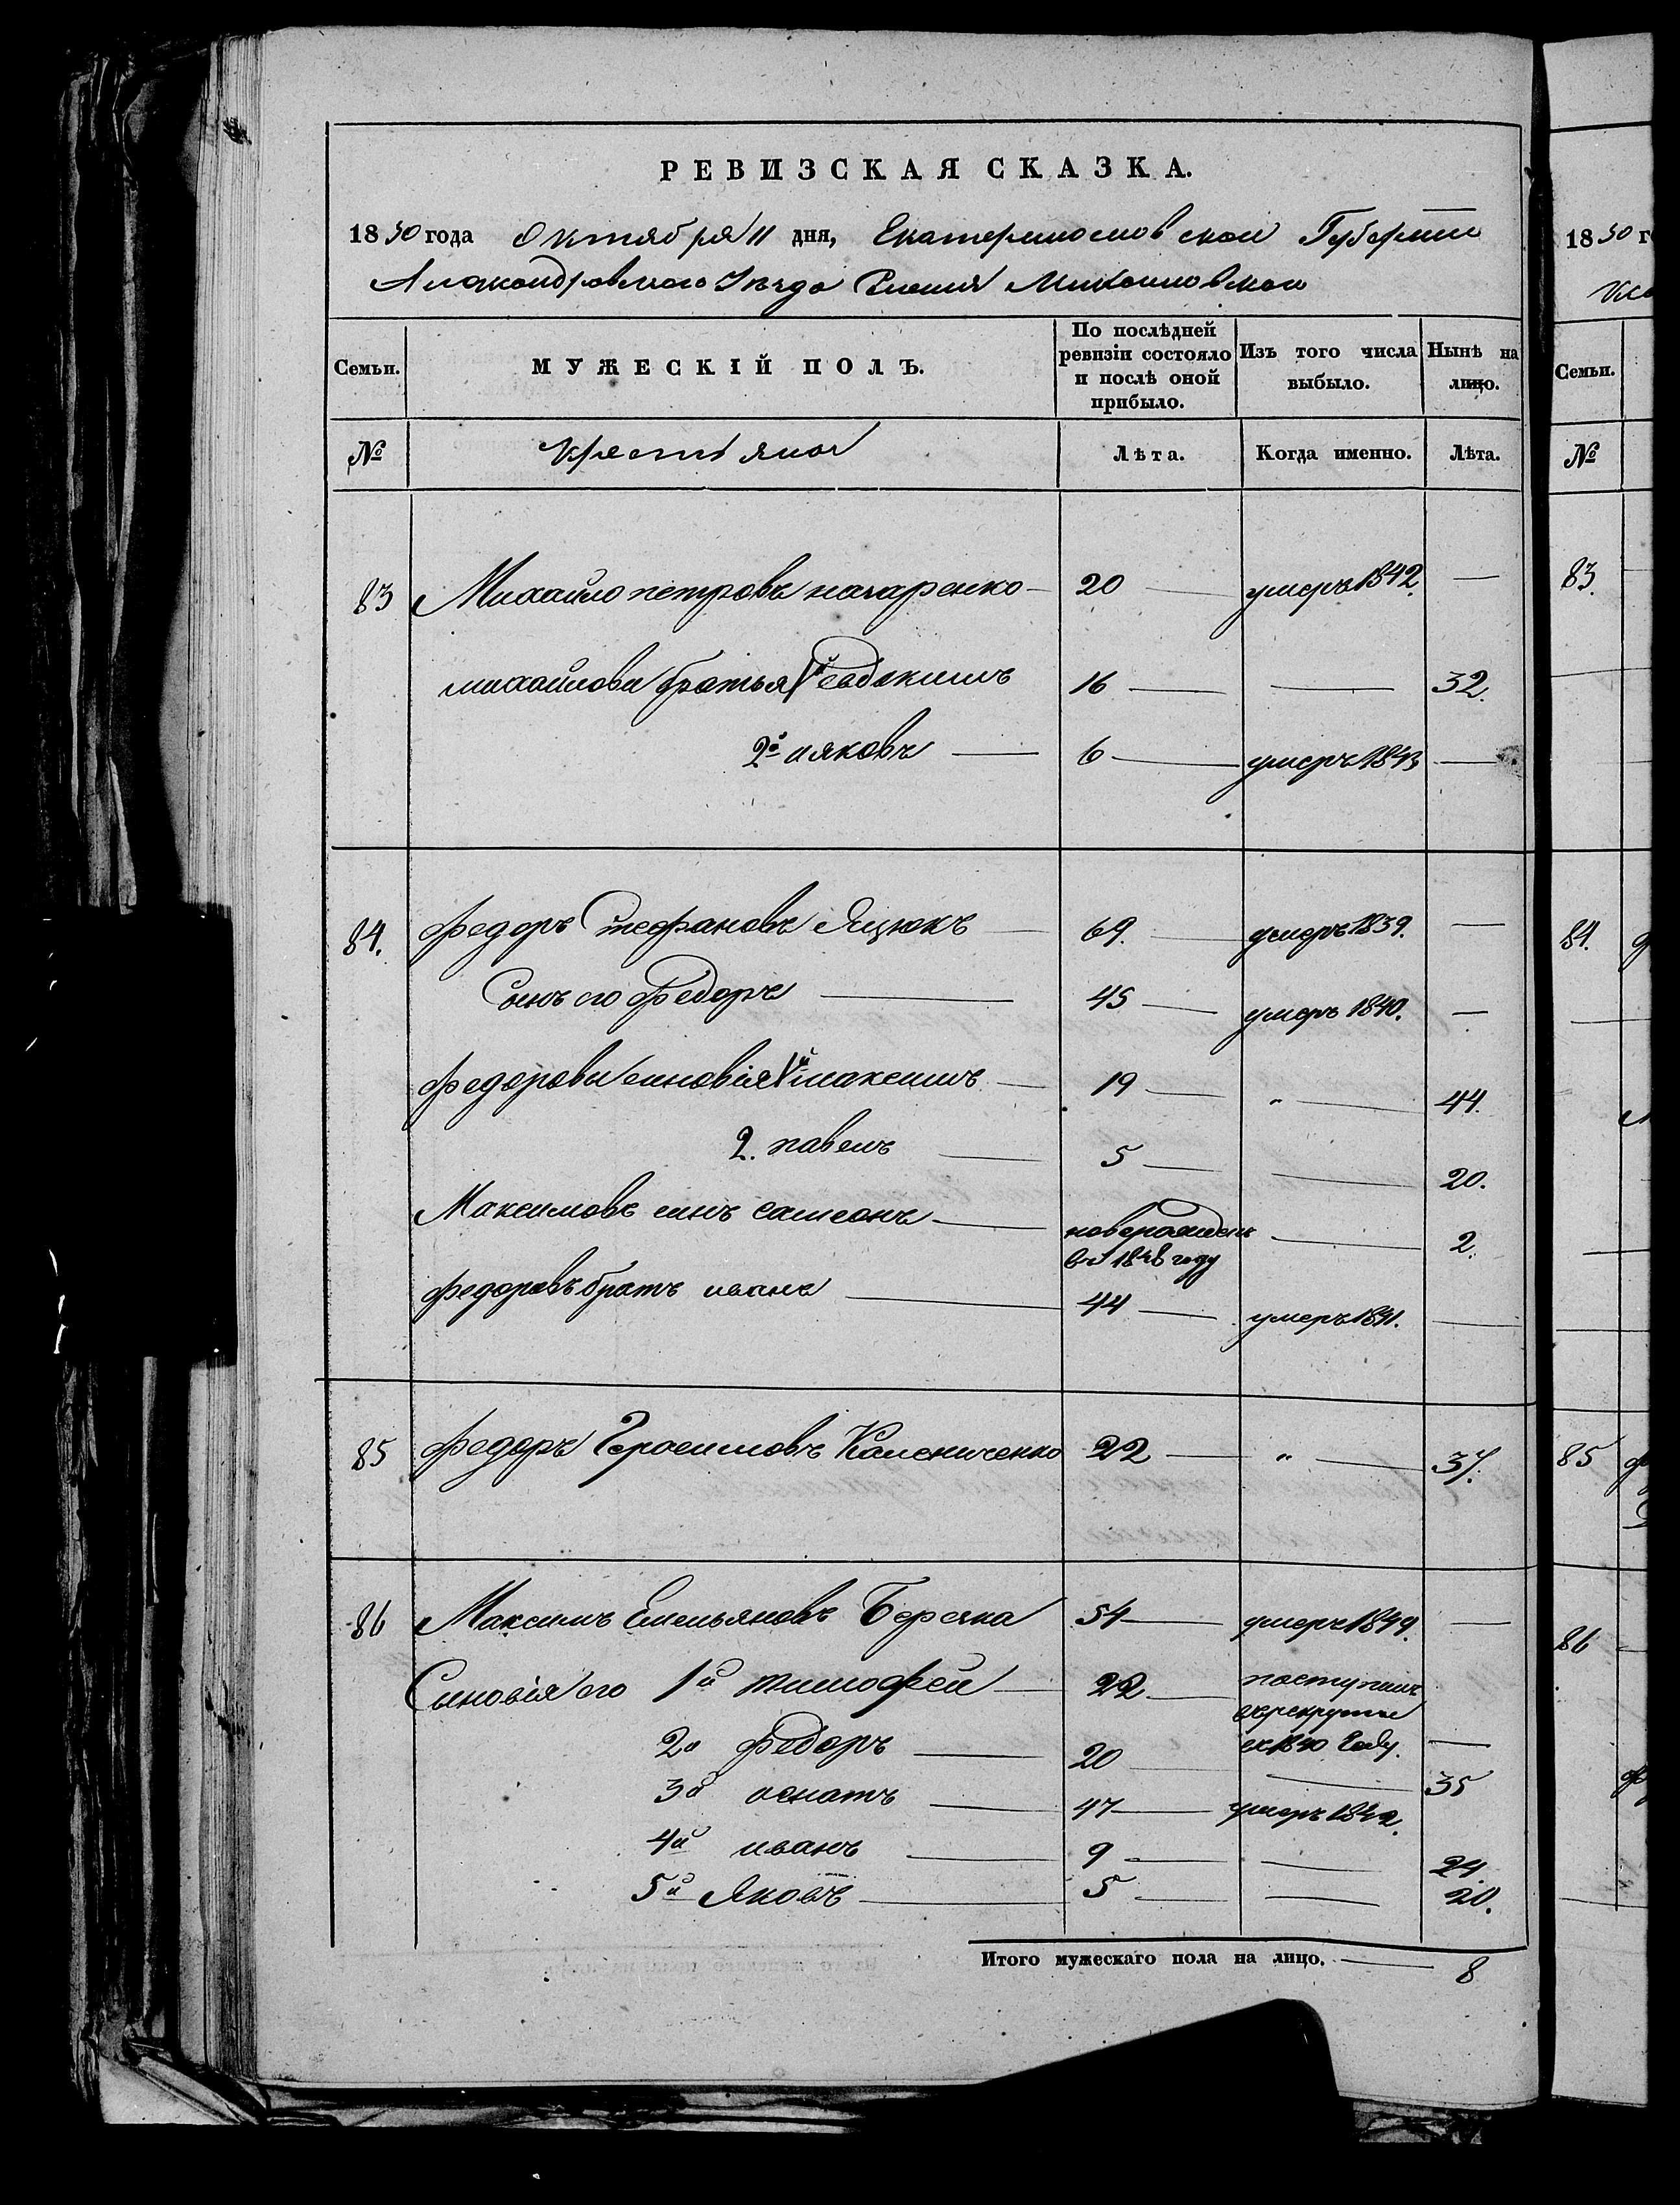 РЕВИЗСКАЯ СКАЗКА.
1850 года Октября 11 дня, Екатеринославской Губернии
Александровского Уезда Михайловской
Семьи. МУЖЕСКІЙ ПОЛЪ. По послѣдней ревизіи состояло и послѣ оной прибыло. Изъ того числа выбыло. Нынѣ на лицо.
№ Крестьяне Лѣта. Когда именно. Лѣта.
83 Михайло петровъ назаренко 20 умеръ 1842. —
михайлови братья 1й евдокимъ 16 — 32.
2й ияковъ 6 умеръ 1843 —
84. Федоръ Стефановъ Яцюкъ 69. умеръ 1839. —
Сынъ его Федоръ 45 умеръ 1840. —
Федорови синовія 1й максимъ 19 „ 44.
2. павелъ 5 — 20.
Максимовъ синъ самсонъ новорожденъ — 2.
въ 1848 году
Федоровъ братъ иванъ 44 умеръ 1841. —
85 Федоръ Герасимовъ Калениченко 22 „ 37.
86 Максимъ Емельяновъ Березка 54 умеръ 1849. —
Синовія его 1й тимофей 22 поступилъ
врекруты
в 1840 Году. —
2й Федоръ 20 — 35
3й игнатъ 17 умеръ 1842.
4й иванъ 9 — 24.
5й Яковъ 5 — 20.
Итого мужескаго пола на лицо. — 8
1850 г
Семьи.
№
83.
84.
85
86